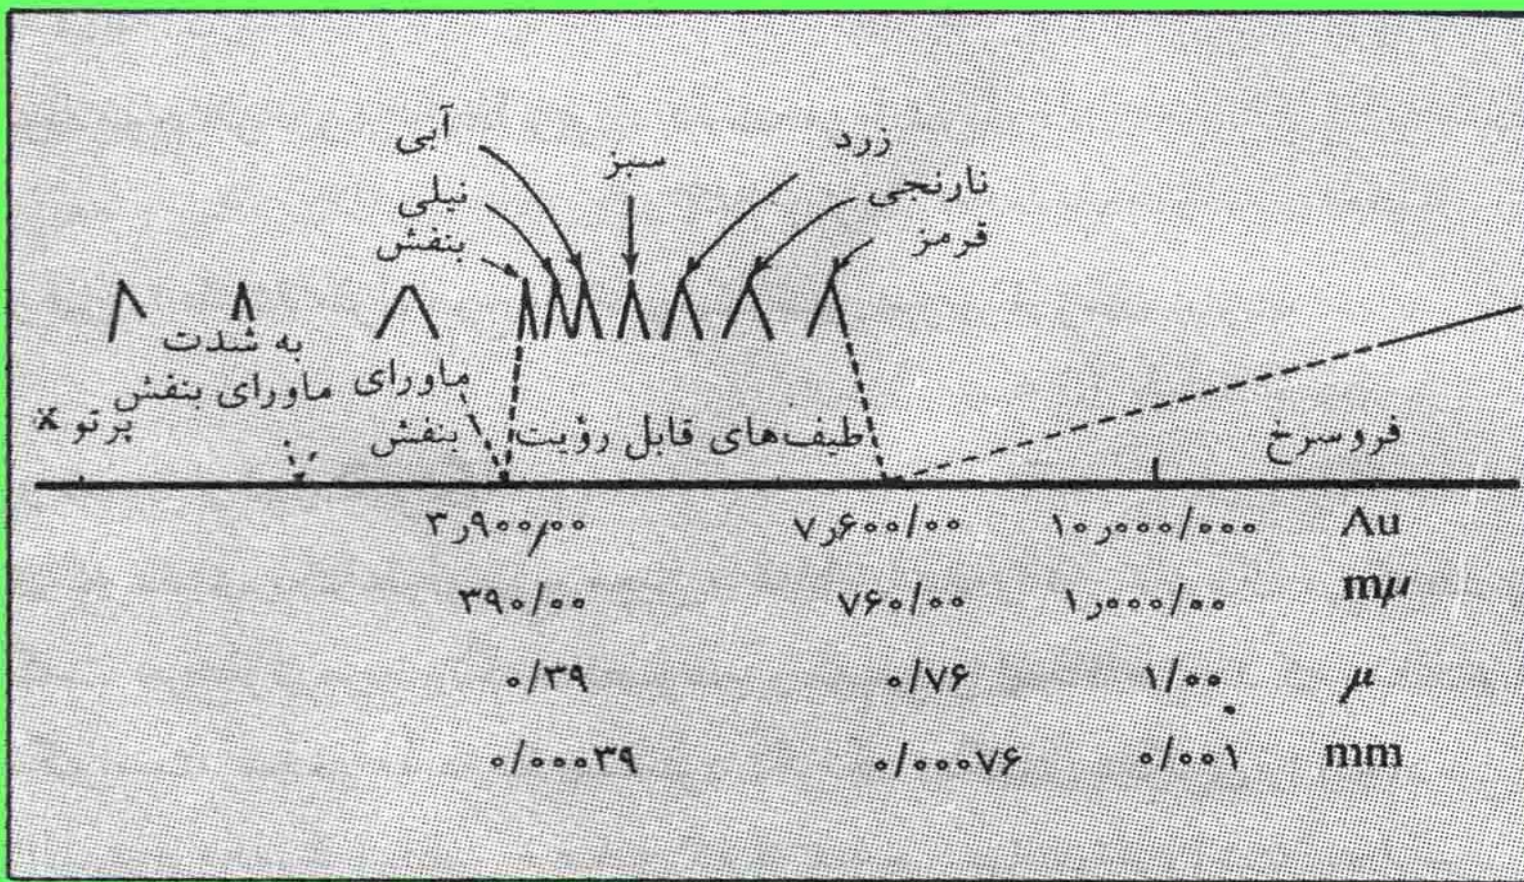 آبی
سبز
زرد
نیلی
نارنجی
بنفش
قرمز
به شدت
ماورای بنفش
ماورای
بنفش
پرتو x
طیف‌های قابل رؤیت
فروسرخ
۳٫۹۰۰/۰۰ ۷٫۶۰۰/۰۰ ۱۰٫۰۰۰/۰۰۰ Λu
۳۹۰/۰۰ ۷۶۰/۰۰ ۱٫۰۰۰/۰۰ mμ
۰/۳۹ ۰/۷۶ ۱/۰۰ μ
۰/۰۰۰۳۹ ۰/۰۰۰۷۶ ۰/۰۰۱ mm